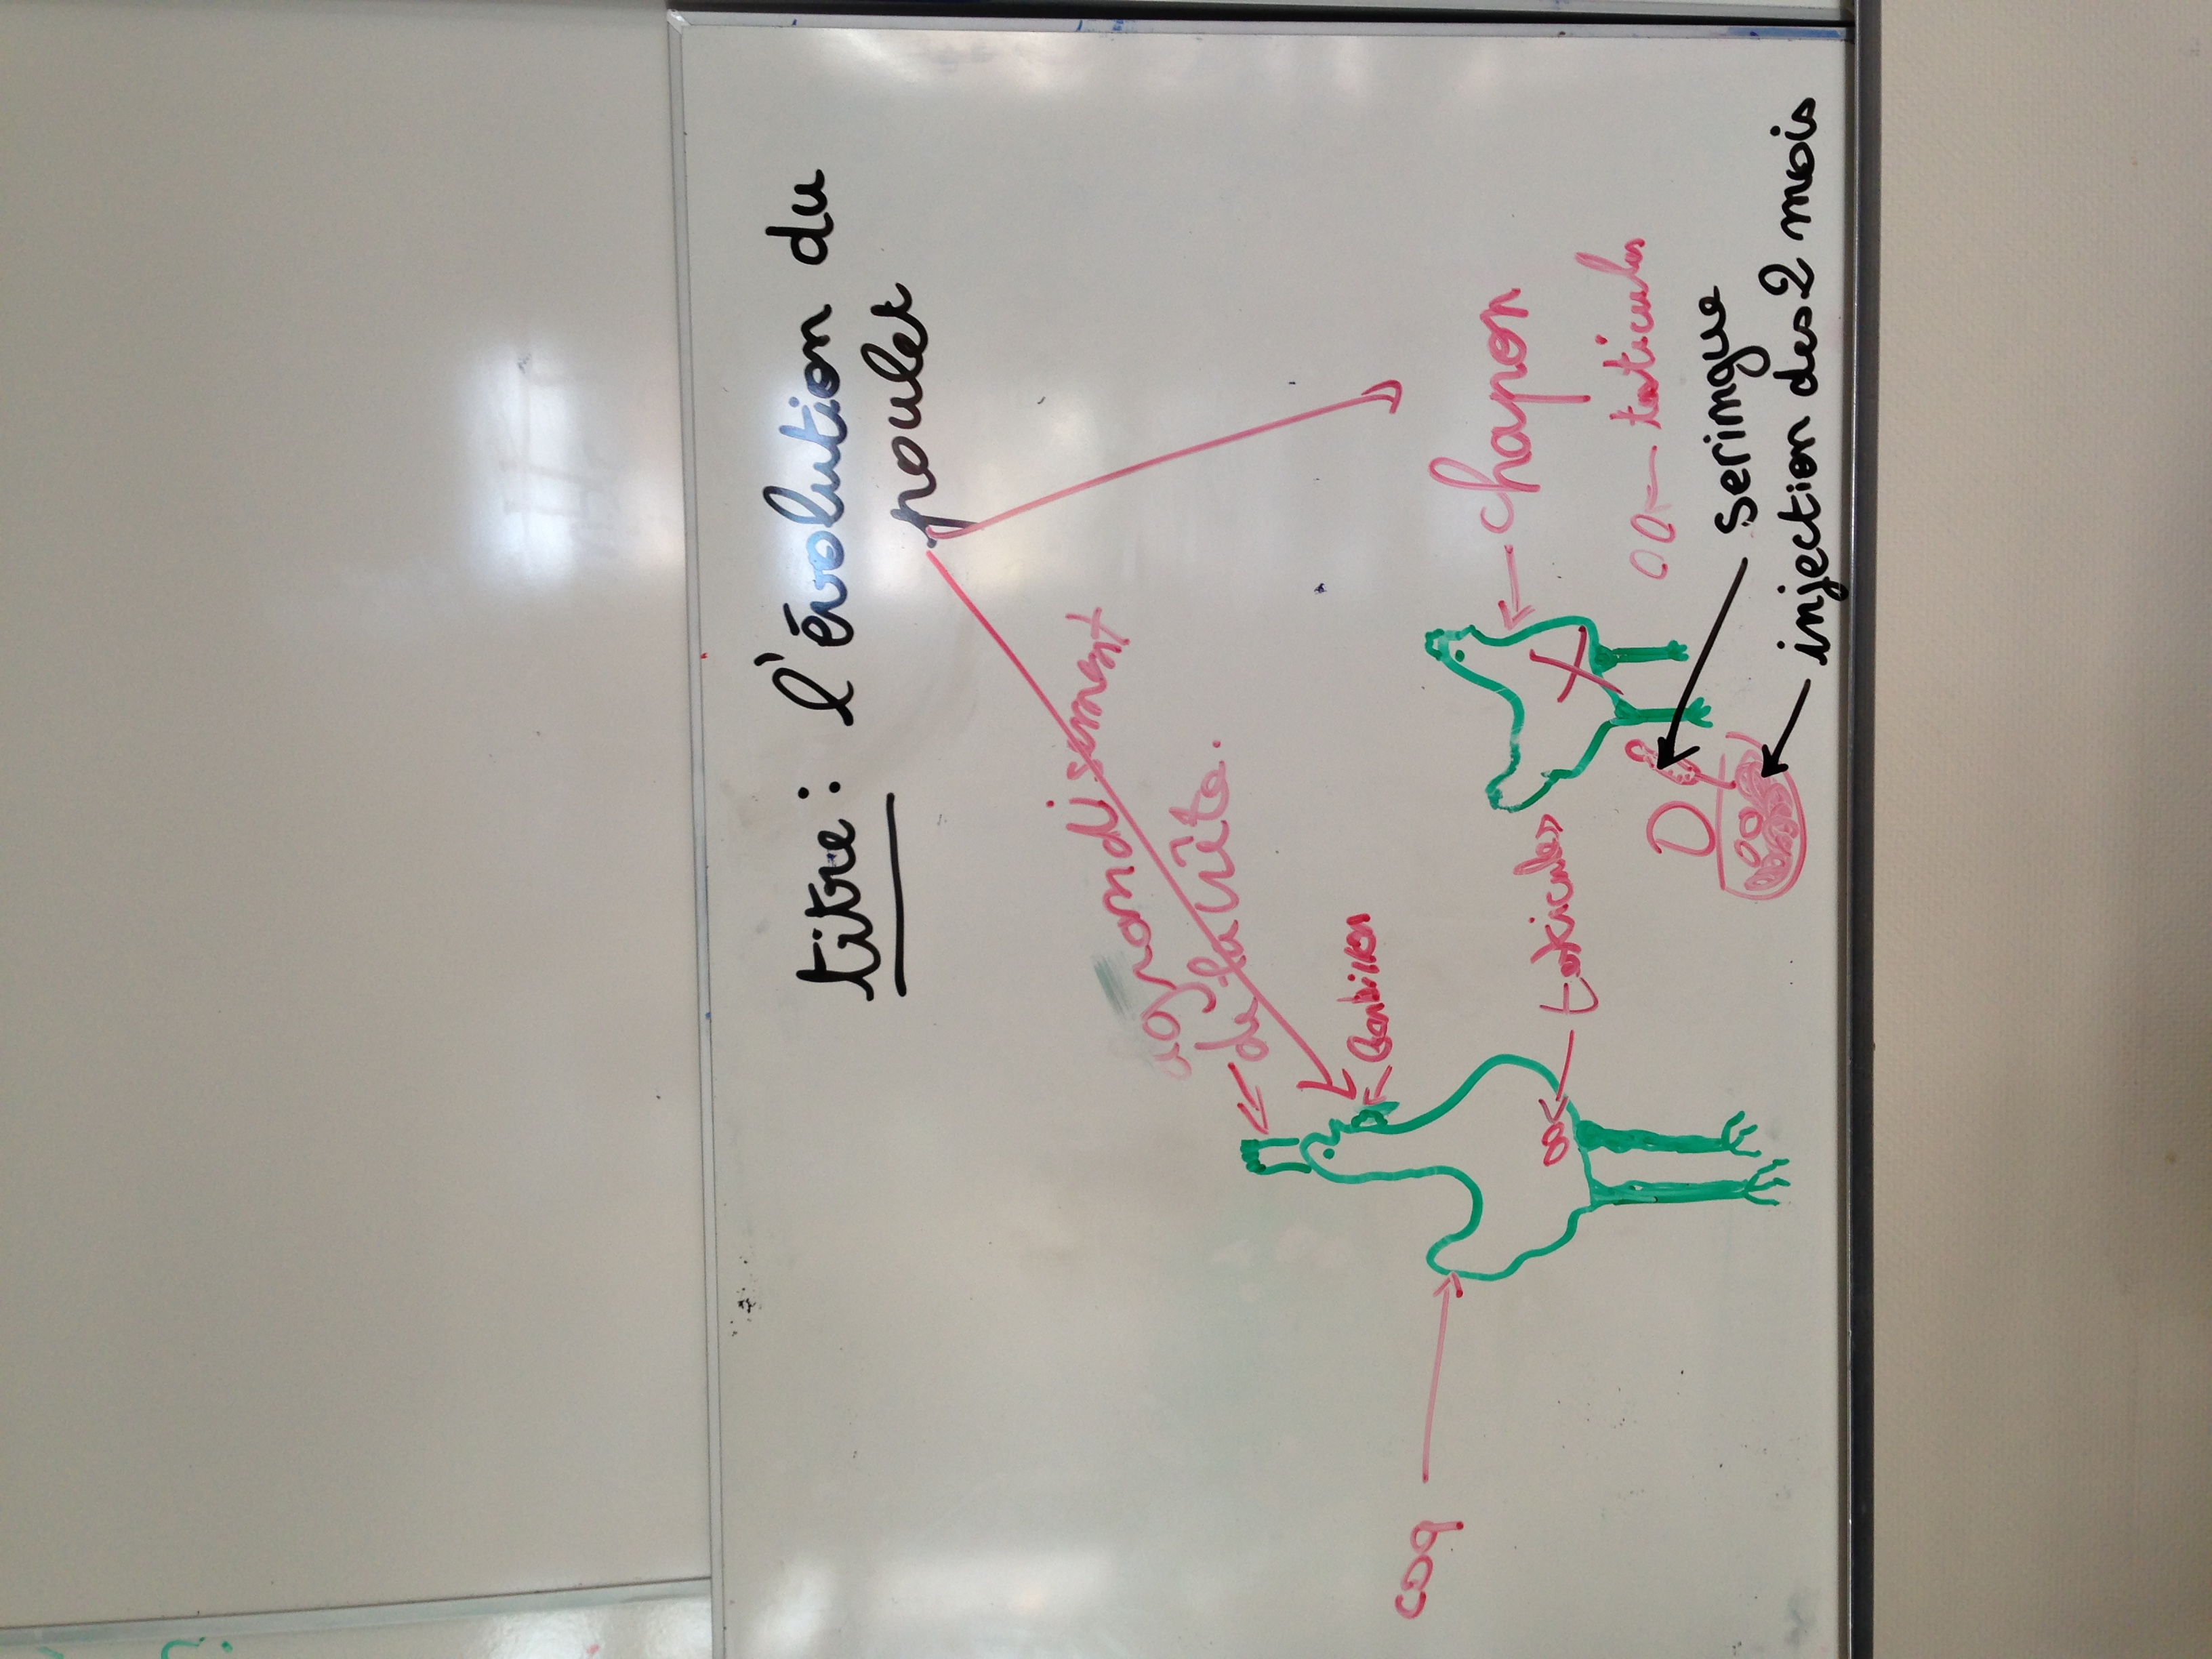 titre : l'évolution du
poulet
agrandisement
de la crête.
coq
testicules
chapon
testicules
seringue
injection des 2 mois